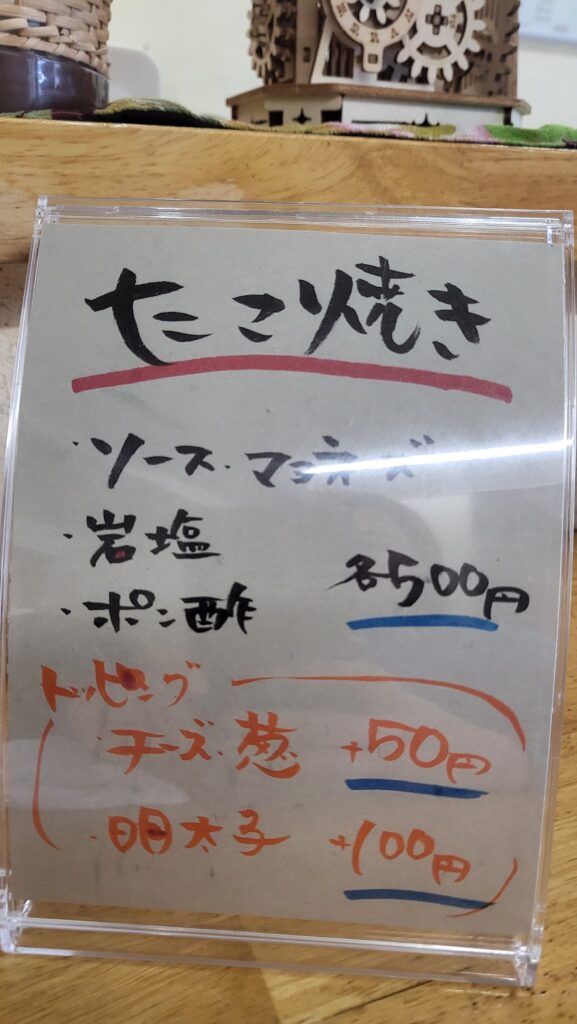 たこ焼き
・ソース・マヨネーズ
・岩塩
・ポン酢 各500円
トッピング
・チーズ・葱 +50円
・明太子 +100円